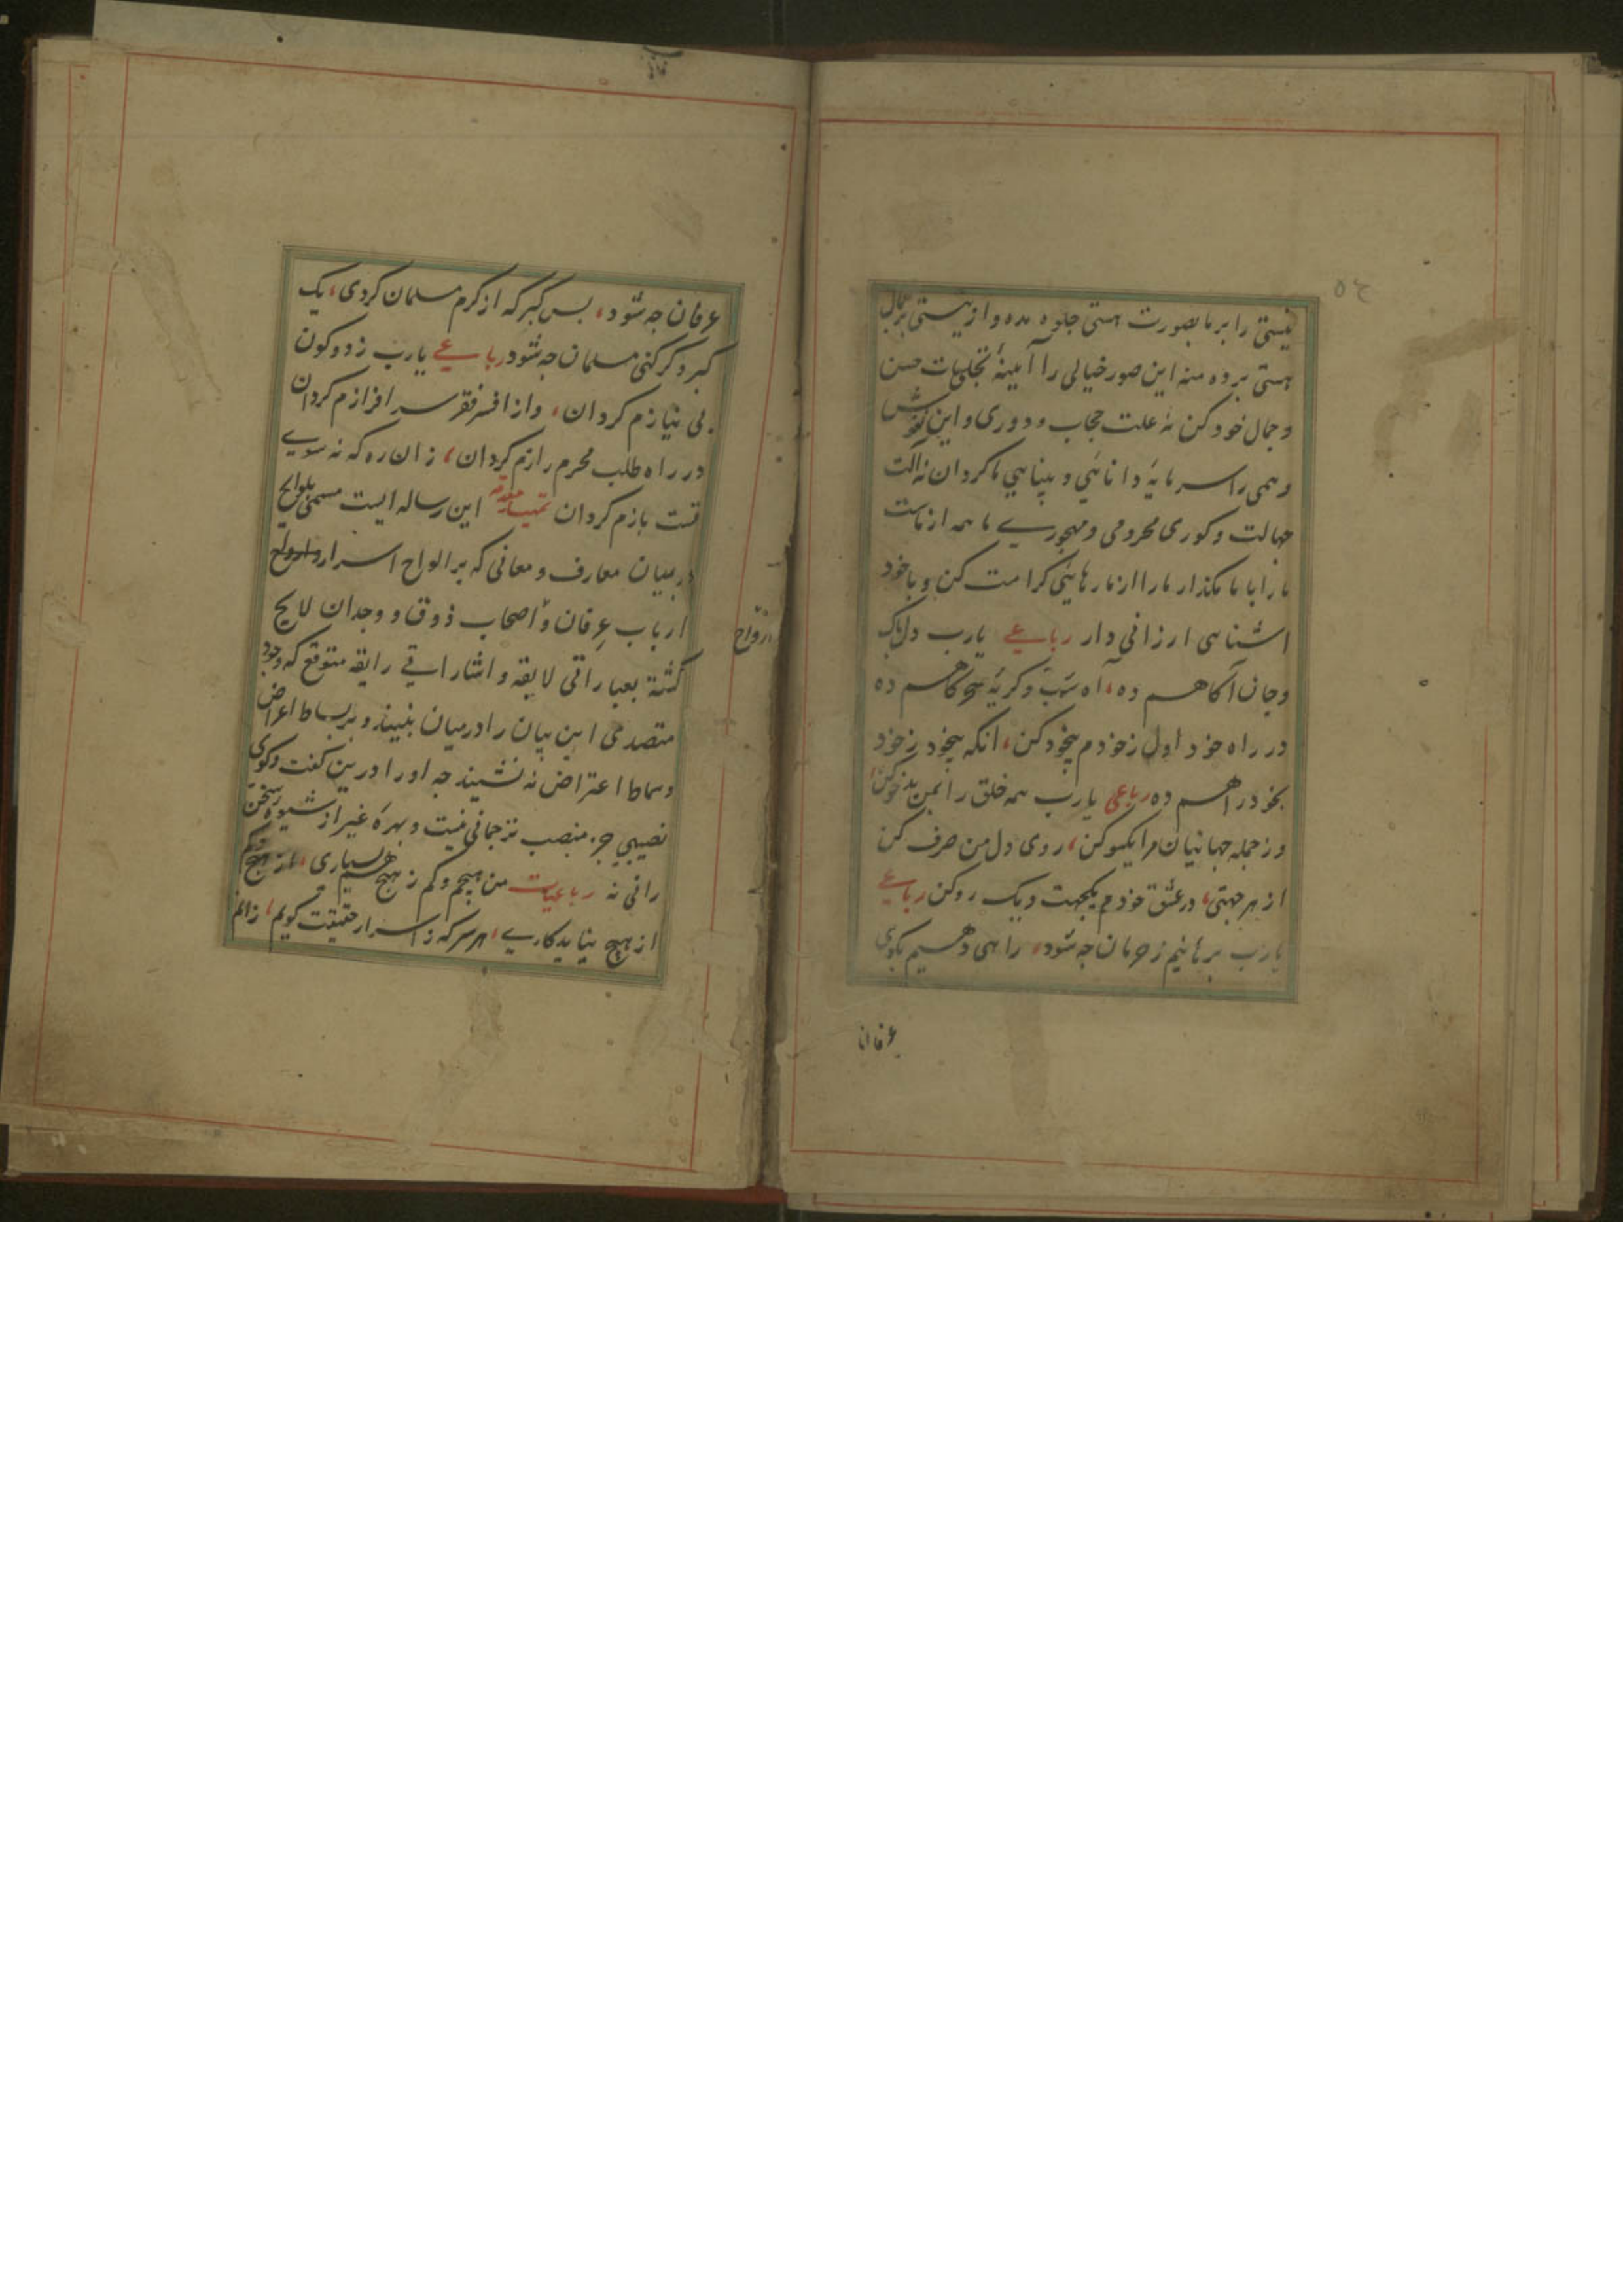 نیستی را بر ما بصورت هستی جلوه مده و از نیستی بر جمال
هستی برده منه این صور خیالی را آیینهٔ تجلیات حسن
و جمال خود کن نه علت حجاب و دوری و این نقوش
وهمی را سرمایهٔ دانائی و بینایی ما کردان نه آلت
جهالت و کوری محرومی و مهجوری ما همه از ماست
ما را با ما مکذار ما را از ما رهائی کرامت کن و با خود
اشنایی ارزانی دار رباعی یارب دل پاک
و جان آکاهم ده، آه شب و کریهٔ سحرکاهم ده
در راه خود اول ز خودم بیخود کن، انکه بیخود ز خود
بخود راهم ده رباعی یارب همه خلق را بمن بدخو کن،
وز جمله جهانیان مرا یکسو کن، روی دل من صرف کن
از هر جهتی، در عشق خودم یکجهت و یک رو کن رباعی
یارب برهانیم ز حرمان جه شود، راهی دهیم بکوی
عرفانا
عرفان جه شود، بس کبر که از کرم مسلمان کردی، یک
کبر دکر کنی مسلمان جه شود رباعی یارب ز دو کون
بی نیازم کردان، واز افسر فقر سرافرازم کردان
در راه طلب محرم رازم کردان، زان ره که نه سوی
تست بازم کردان تمهید مقدمه این رساله ایست مسمی بلوایح
در بیان معارف و معانی که بر الواح اسرار و ارواح
ارواح
ارباب عرفان و اصحاب ذوق و وجدان لایح
کشته بعباراتی لایقه و اشاراتی رایقه متوقع که وجود
متصدی این بیان را در میان نبینند و بر بساط اعراض
و سماط اعتراض نه نشینند جه او را درین کفت و کوی
نصیبی جز منصب ترجمانی نیست و بهره غیر از شیوه سخن
رانی نه رباعیات من هیچم و کم ز هیچ هم بسیاری، از هیچ و کم
از هیچ نیاید کاری، هر سر که ز اسرار حقیقت کویم، زانم